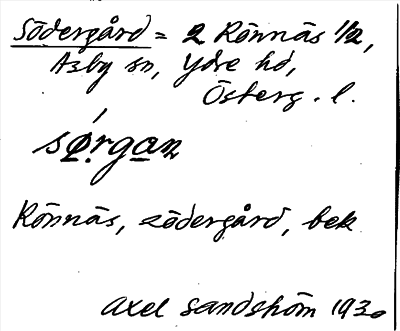 Södergård = 2 Rönnäs 1/2,
Asby sn, Ydre hd,
Österg. l.
sǿ̣rgan
Rönnäs, södergård, bek
Axel Sandström 1930